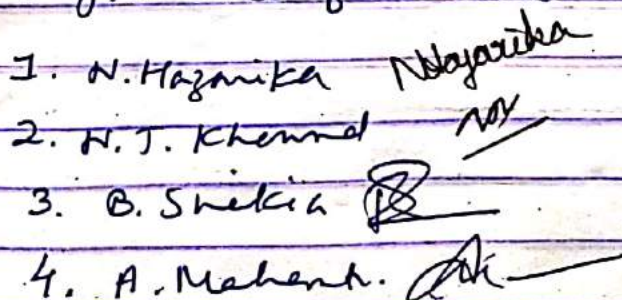 1. N. Hazarika NHazarika
2. N. J. Khound
3. B. Saikia
4. A. Mahant.